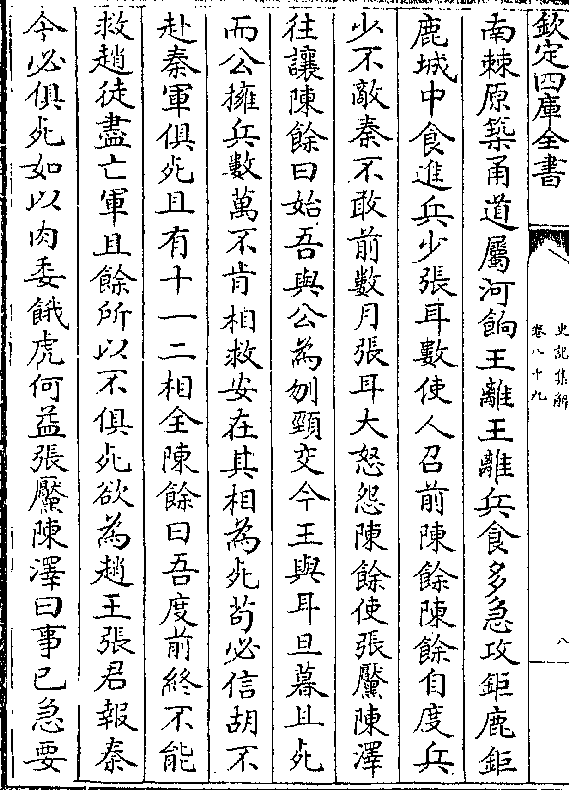 欽定四庫全書
史記集解
卷八十九
八
南棘原築甬道屬河餉王離王離兵食多急攻鉅鹿鉅
鹿城中食進兵少張耳數使人召前陳餘陳餘自度兵
少不敵秦不敢前數月張耳大怒怨陳餘使張黶陳澤
往讓陳餘曰始吾與公為刎頸交今王與耳旦暮且死
而公擁兵數萬不肯相救安在其相為死苟必信胡不
赴秦軍俱死且有十一二相全陳餘曰吾度前終不能
救趙徒盡亡軍且餘所以不俱死欲為趙王張君報秦
今必俱死如以肉委餓虎何益張黶陳澤曰事已急要